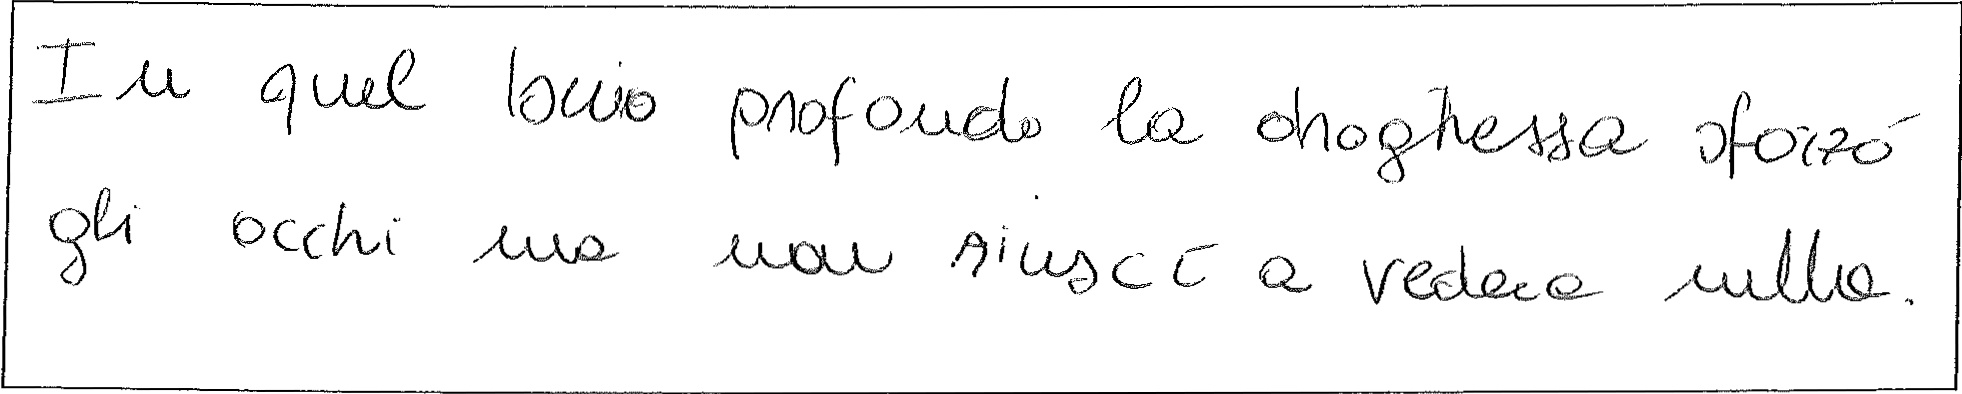 In quel buio profondo la draghessa sforzò
gli occhi ma non riuscì a vedere nulla.